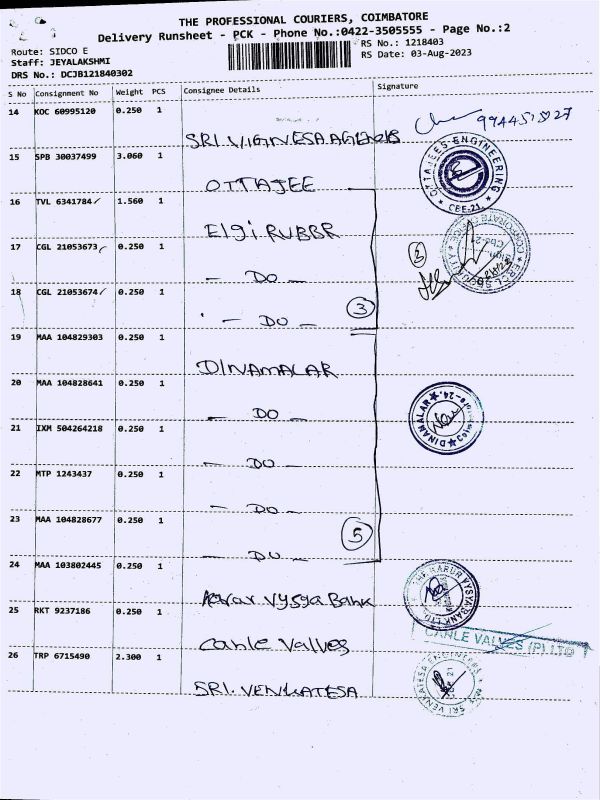 THE PROFESSIONAL COURIERS, COIMBATORE
Delivery Runsheet - PCK - Phone No.:0422-3505555 - Page No.:2
Route: SIDCO E
RS No.: 1218403
Staff: JEYALAKSHMI
RS Date: 03-Aug-2023
DRS No.: DCJB121840302
S No Consignment No Weight PCS Consignee Details Signature
14 KOC 60995120 0.250 1 SRI.VIGNESA AGENCIES
15 SPB 30037499 3.060 1 OTTAJEE
OTTAJEES ENGINEERING
CBE-21.
16 TVL 6341784 1.560 1 Elgi RUBBR
17 CGL 21053673 0.250 1 - DO -
18 CGL 21053674 0.250 1 - DO -
3
19 MAA 104829303 0.250 1 DINAMALAR
20 MAA 104828641 0.250 1 - DO -
DINAMALAR
21 IXM 504264218 0.250 1 - DO -
22 MTP 1243437 0.250 1 - DO -
23 MAA 104828677 0.250 1 - DO -
5
24 MAA 103802445 0.250 1 Karur Vysya Bank
THE KARUR VYSYA BANK LTD
25 RKT 9237186 0.250 1 Canle Valves
CANLE VALVES (P) LTD
26 TRP 6715490 2.300 1 SRI.VENKATESA
SRI VENKATESA ENGINEERING